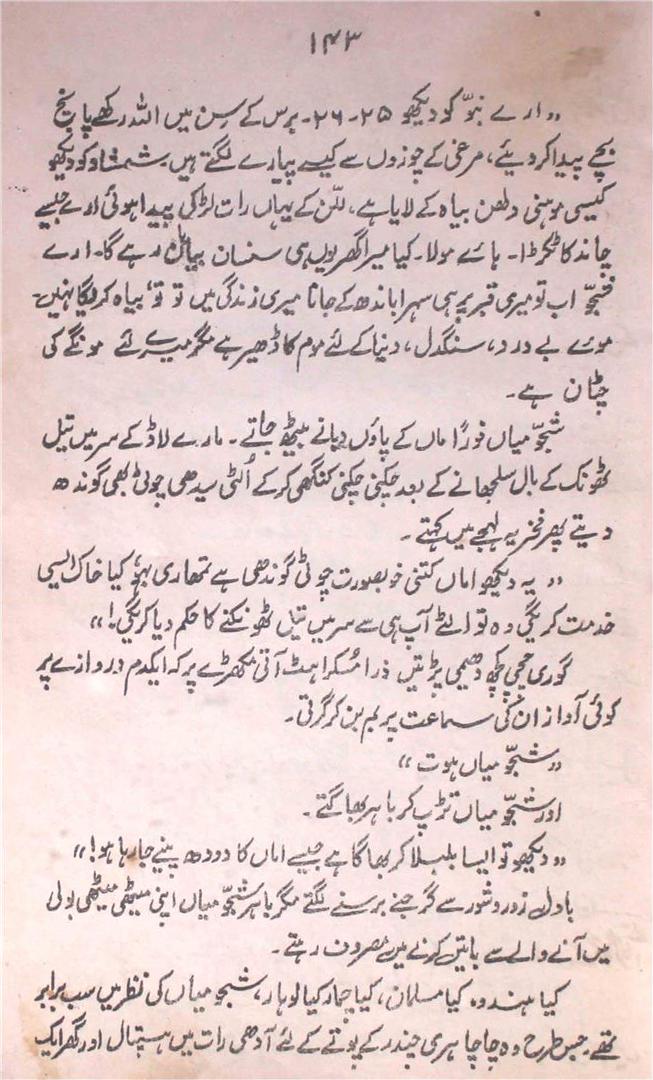 ۱۴۳
،، ارے نبّو کو دیکھو ۲۵-۲۶ برس کے سِن میں اللہ رکھے پانچ
بچے پیدا کر دیئے، مرغی کے چوزوں سے کیسے پیارے لگتے ہیں۔ شمشاد کو دیکھو
کیسی موہنی دلھن بیاہ کے لایا ہے، للّن کے یہاں رات لڑکی پیدا ہوئی ارے جیسے
چاند کا ٹکرڑا۔ ہائے مولا۔ کیا میرا گھر یوں ہی سنسان بیابان رہے گا۔ ارے
شجّو اب تو میری قبر پر ہی سہرا باندھ کے جانا میری زندگی میں تو تُو، بیاہ کریگا نہیں۔
موئے بے درد، سنگدل، دنیا کے لئے موم کا ڈھیر ہے مگر میرے لئے مونگے کی
چٹان ہے۔
شجّو میاں فورًا اماں کے پاؤں دبانے بیٹھ جاتے۔ مارے لاڈ کے سر میں تیل
ٹھونک کے بال سلجھانے کے بعد چکنی چکنی کنگھی کر کے اُلٹی سیدھی چوٹی بھی گوندھ
دیتے پھر فخریہ لہجے میں کہتے۔
،، یہ دیکھو اماں کتنی خوبصورت چوٹی گوندھی ہے تمھاری بہو کیا خاک ایسی
خدمت کریگی وہ تو الٹے آپ ہی سے سر میں تیل ٹھونکنے کا حکم دیا کریگی!،،
گوری چچی کچھ دھیمی پڑتیں ذرا مُسکراہٹ آتی مکھڑے پر کہ ایکدم دروازے پر
کوئی آواز ان کی سماعت پر بم بن کر گرتی۔
،، شجّو میاں ہوت ،،
اور شجّو میاں تڑپ کر باہر بھاگتے۔
،، دیکھو تو ایسا بلبلا کر بھاگا ہے جیسے اماں کا دودھ پینے جا رہا ہو!،،
بادل زور و شور سے گرجنے برسنے لگتے مگر باہر شجّو میاں اپنی میٹھی میٹھی بولی
میں آنے والے سے باتیں کرنے میں مصروف رہتے۔
کیا ہندو ہ کیا مسلمان، کیا چمار کیا لوہار، شجو میاں کی نظر میں سب برابر
تھے۔ جس طرح وہ چاچا ہری چندر کے پوتے کے لئے آدھی رات میں ہسپتال اور گھر ایک